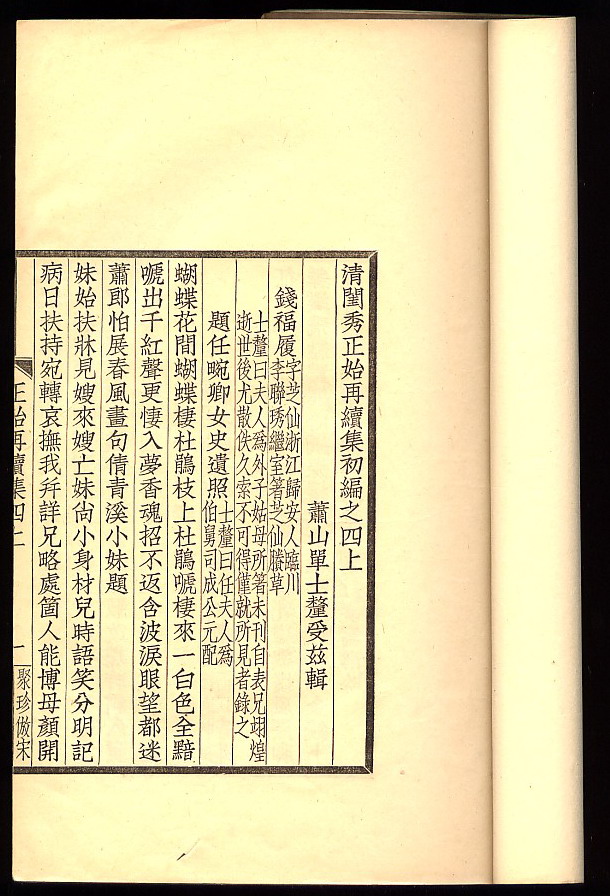 清閨秀正始再續集初編之四上
蕭山單士釐受茲輯
錢福履字芝仙浙江歸安人臨川
李聯琇繼室著芝仙賸草
士釐曰夫人爲外子姑母所箸未刊自表兄翊煌
逝世後尤散佚久索不可得僅就所見者錄之
題任畹卿女史遺照士釐曰任夫人爲
伯舅司成公元配
蝴蝶花間蝴蝶棲杜鵑枝上杜鵑嗁棲來一白色全黯
嗁出千紅聲更悽入夢香魂招不返含波淚眼望都迷
蕭郎怕展春風畫句倩青溪小妹題
妹始扶牀見嫂來嫂亡妹尙小身材兒時語笑分明記
病日扶持宛轉哀撫我幷詳兄略處箇人能博母顏開
正始再續集四上
一
聚珍倣宋